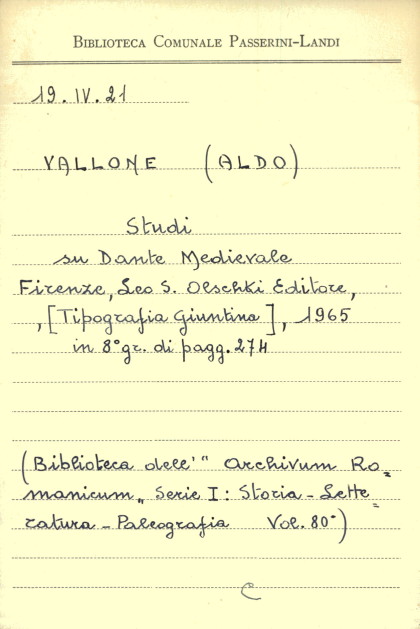 BIBLIOTECA COMUNALE PASSERINI-LANDI
19. IV. 21
VALLONE (ALDO)
Studi
su Dante Medievale
Firenze, Leo S. Olschki Editore,
, [Tipografia Giuntina], 1965
in 8° gr. di pagg. 274
(Biblioteca dell'" Archivum Ro=
manicum„ Serie I: Storia - Lette=
ratura - Paleografia Vol. 80°)
C